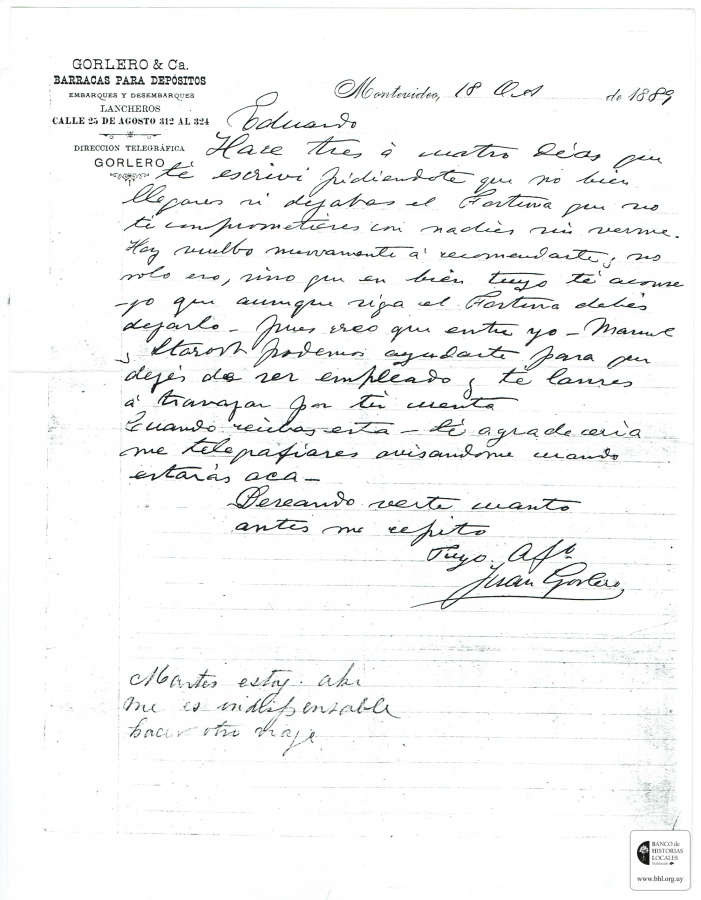 GORLERO & Ca.
BARRACAS PARA DEPÓSITOS
EMBARQUES Y DESEMBARQUES
LANCHEROS
CALLE 25 DE AGOSTO 312 AL 324
DIRECCION TELEGRÁFICA
GORLERO
Montevideo, 18 Oct de 1889
Eduardo
Hace tres á cuatro dias que
té escrivi pidiendote que no bien
llegares si dejabas el Fortuna que no
té comprometieres con nadies sin verme.
Hoy vuelbo nuevamente á recomendarte, no
solo eso, sino que en bien tuyo té aconse
-jo que aunque siga el Fortuna debés
dejarlo - pues creo que entre yo - Manuel
y podemos ayudarte para que
dejés de ser empleado y té lances
á travajar por tú cuenta
Cuando recibas esta - té agradeceria
me telegrafiares avisandome cuando
estarás aca -
Deseando verte cuanto
antes me repito
Tuyo Afo
Juan Gorlero
Martes estoy ahi
me es indispensable
hacer otro viaje
BANCO de
HISTORIAS
LOCALES
www.bhl.org.uy